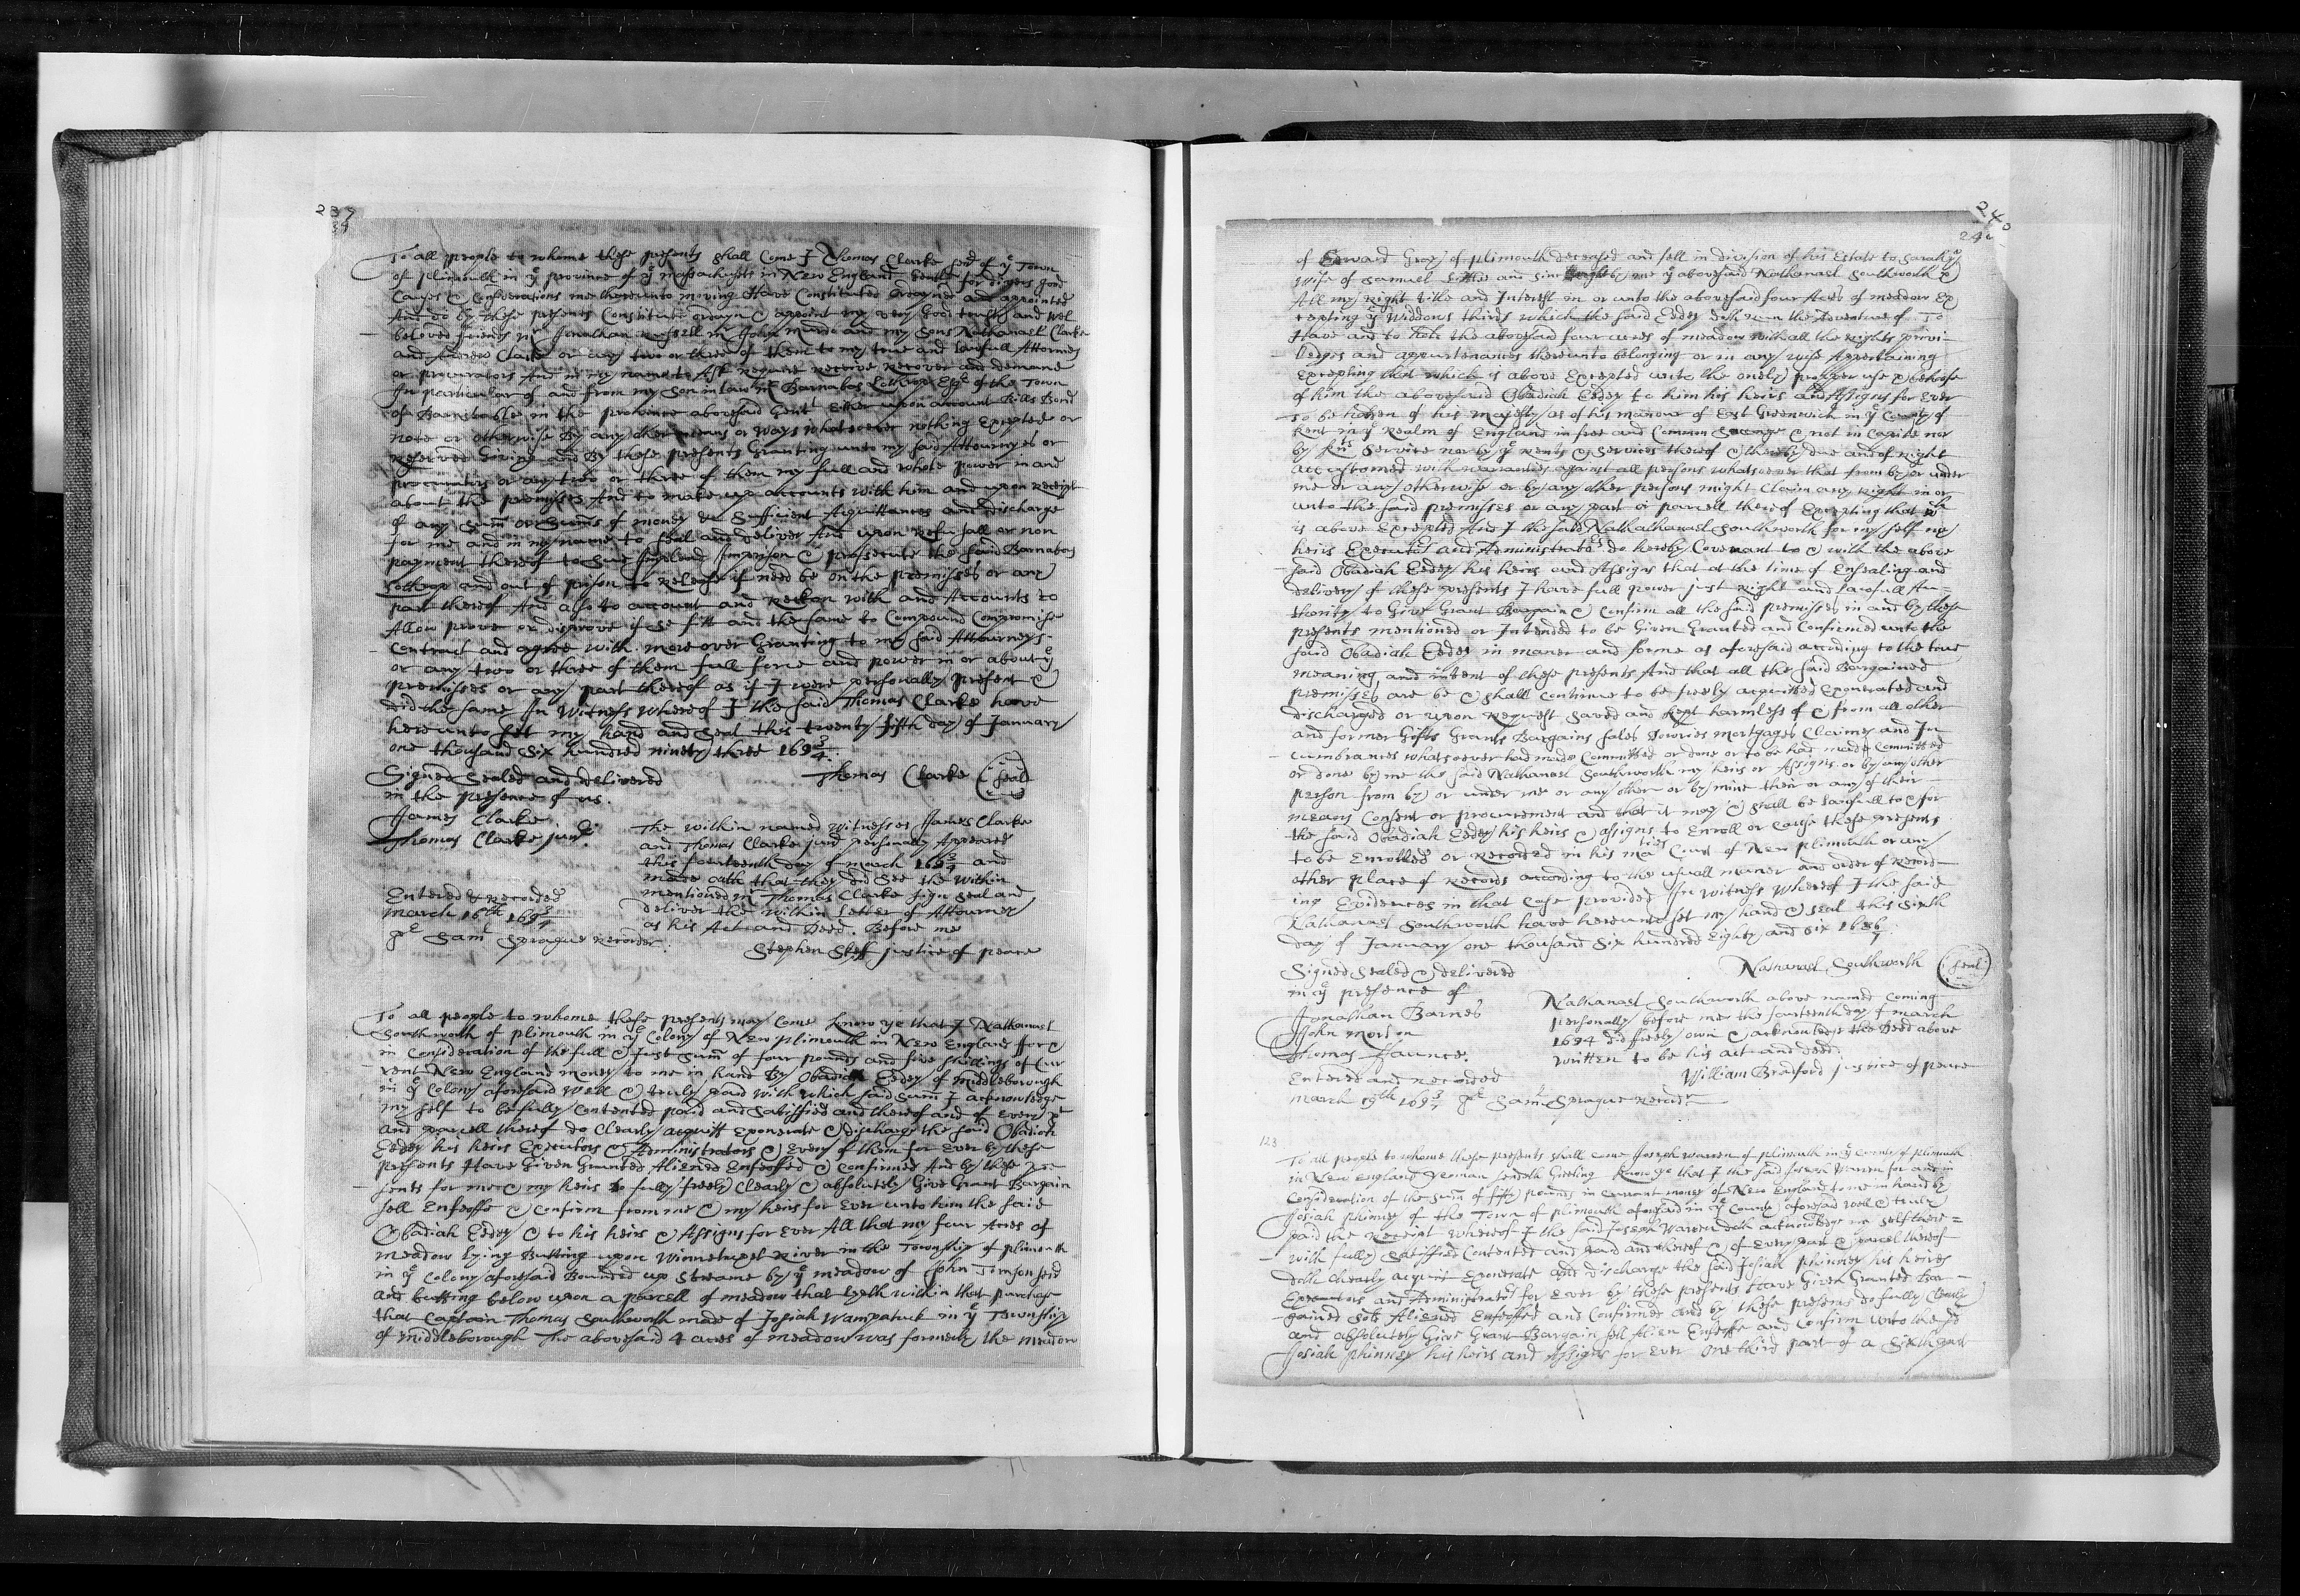 239
39
To all people to whome these presents shall Come I Thomas Clarke senr of ye Town
of plimouth in ye province of ye massachusets in New England Gentle for divers good
Causes & Considerations me thereunto moving Have Constituted ordayned and appointed
And do by these presents Constitute ordayn & appoint my very Good trusty and wel
beloved friends mr Jonathan Russell mr John and my Sons Nathanael Clarke
and Andrew Clarke or any two or three of them to my true and lawfull Attorneys
or procurators And in my name to Ask require receive recover and demand
In particular of and from my Son in law mr Barnabas Lothrop Esqr of the Town
of Barnstable in the province abovesaid Gent Either upon account Bills Bond
Note or otherwise By any other means or ways whatsoever nothing Excepted or
reserved Giving and By these presents Granting unto my said Attournyes or
procurators or any two or three of them my full and whole power in and
about the premises And to make up accounts with him and upon receipt
of any Sum or Sums of money &c Sufficient Acquittances and discharge
for me and in my name to seal and deliver And upon Refusall or non
payment thereof to Sue Imprison & prosecute the said Barnabas
Lothrop and out of prison to Release if need be on the premisses or any
part thereof And also to account and Reckon with and Accounts to
Allow prove or disprove if Se fitt and the same to Compound Compromise
Contract and agree with moreover Granting to my said Attourneys
or any two or three of them full force and power in or about ye
premisses or any part thereof as if I were personally present &
did the same In Witness whereof I the said Thomas Clarke have
hereunto set my hand and Seal this twenty fifth day of January
one thousand Six hundred ninety three 1693/4
Signed Sealed and delivered Thomas Clarke (seal)
in the presence of us.
James Clarke
Thomas Clarke junr.
The within named witnesses James Clarke
and Thomas Clarke junr personally Appeared
this fourteenth day of march 1693/4 and
made oath that they did See the within
mentioned mr Thomas Clarke sign seal and
deliver the within letter of Attourney
as his Act and Deed. Before me
Stephen Skeff justice of peace
Entered & recorded
march 16th 1693/4
pr Saml Sprague recorder
To all people to whome these presents may come know ye that I Nathanael
Southworth of plimouth in ye Colony of New plimouth in New England for &
in Consideration of the full & Just Sum of four pounds and five shillings of Cur
rent New England money to me in hand By Obadiah Eedey of middleborough
in ye Colony aforesaid well & truly paid with which said sum I acknowledge
my self to be fully Contented paid and Satisfied and thereof and of Every pt
and parcell thereof do Clearly acquitt Exonerate & discharge the said Obadiah
Eedey his heirs Executors & Administrators & Every of them for Ever by these
presents Have Given Granted Aliened Enfeoffed & Confirmed And by these pre
sents for me & my heirs Do fully freely Clearly & absolutely Give Grant Bargain
sell Enfeoffe & Confirm from me & my heirs for Ever unto him the said
Obadiah Eedey & to his heirs & Assigns for Ever All that my four Acres of
meadow lying Butting upon Winnetuxet River in the Township of plimouth
in ye Colony aforesaid Bounded up streame by ye meadow of John Tomson senr
and butting below upon a parcell of meadow that lyeth within that purchase
that Captain Thomas Southworth made of Josiah Wampatuck in ye Township
of middleborough The abovesaid 4 acres of meadow was formerly the meadow
240
240
of Edward Gray of plimouth deceased and fell in division of his Estate to Sarah ye
wife of Samuel Little and since bought by me ye abovesaid Nathanael Southworth &
All my right title and Interest in or unto the abovesaid four Acres of meadow Ex
cepting ye widdows thirds which the said Eedey doth run the Adventure of To
Have and to hold the abovesaid four acres of meadow with all the rights privi-
ledges and appurtenances thereunto belonging or in any wise Appertaining
Excepting that which is above Excepted unto the onely propper use & behoofe
of him the abovesaid Obadiah Eedey to him his heirs and Assigns for Ever
To be holden of his majesty as of his manour of East Greenwich in ye County of
Kent in ye Realm of England in free and Common Soccage & not in Capite nor
by knts Service nor by ye rents & services thereof & thereby due and of right
accustomed with warranties against all persons whatsoever that from by or under
me or any otherwise or by any other persons might Claim any right in or
unto the said premisses or any part or parcell thereof Excepting that wch
is above Excepted And I the said Nathathanael Southworth for my self my
heirs Executors and Administrators do hereby Covenant to & with the above
said Obadiah Eedey his heirs and Assigns that at the time of Ensealing and
delivery of these presents I have full power just right and lawfull Au-
thority to Give Grant Bargain & Confirm all the said premisses in and by these
presents mentioned or Intended to be Given Granted and Confirmed unto the
said Obadiah Eedey in maner and forme as aforesaid according to the true
meaning and intent of these presents And that all the said Bargained
premisses are be & shall Continue to be freely acquitted Exonerated and
discharged or upon Request Saved and kept harmless of & from all other
and former Gifts Grants Bargains sales Dowries mortgages Claimes and In
cumbrances whatsoever had made Committed or done or to be had made Committed
or done by me the said Nathanael Southworth my heirs or Assigns or by any other
person from by or under me or any other or by mine their or any of their
means Consent or procurement and that it may & shall be lawfull to & for
the said Obadiah Eedey his heirs & assigns to Enroll or Cause these presents
to be Enrolled or Recorded in his maties Court of New plimouth or any
other place of records according to the usuall maner and order of record-
ing Evidences in that Case provided In Witness whereof I the said
Nathanael Southworth have hereunto set my hand & seal this Sixth
day of January one thousand Six hundred Eighty and six 1686/7
Signed Sealed & delivered Nathanael Southworth (seal)
in ye presence of
Jonathan Barnes
John morton
Thomas Faunce.
Nathanael Southworth above named Coming
personally before me the fourteenth day of march
1694 did freely own & acknowledge the Deed above
written to be his act and deed.
William Bradford justice of peace
Entered and recorded
march 19th 1693/4 pr Saml Sprague recordr
123
To all people to whome these presents shall come Joseph Warren of plimouth in ye County of plimouth
in New England yeoman sendeth Greeting Know ye that I the said Joseph Warren for and in
Consideration of the Sum of fifty pounds in Currant money of New England to me in hand by
Josiah phinney of the Town of plimouth aforesaid in ye County aforesaid well & truly
paid the Receipt whereof I the said Joseph Warren doth acknowledge my self there=
with fully Satisfied Contented and paid and thereof & of Every part & parcel thereof
doth Clearly acquitt Exonerate and discharge the said Josiah phinney his heires
Executors and Administrators for Ever by these presents Have Given Granted Bar-
gained Sold Aliened Enfeoffed and Confirmed and by these presents do fully Clearly
and absolutely Give Grant Bargain sell Alien Enfeoffe and Confirm unto the sd
Josiah phinney his heirs and Assigns for Ever One third part of a Sixth part